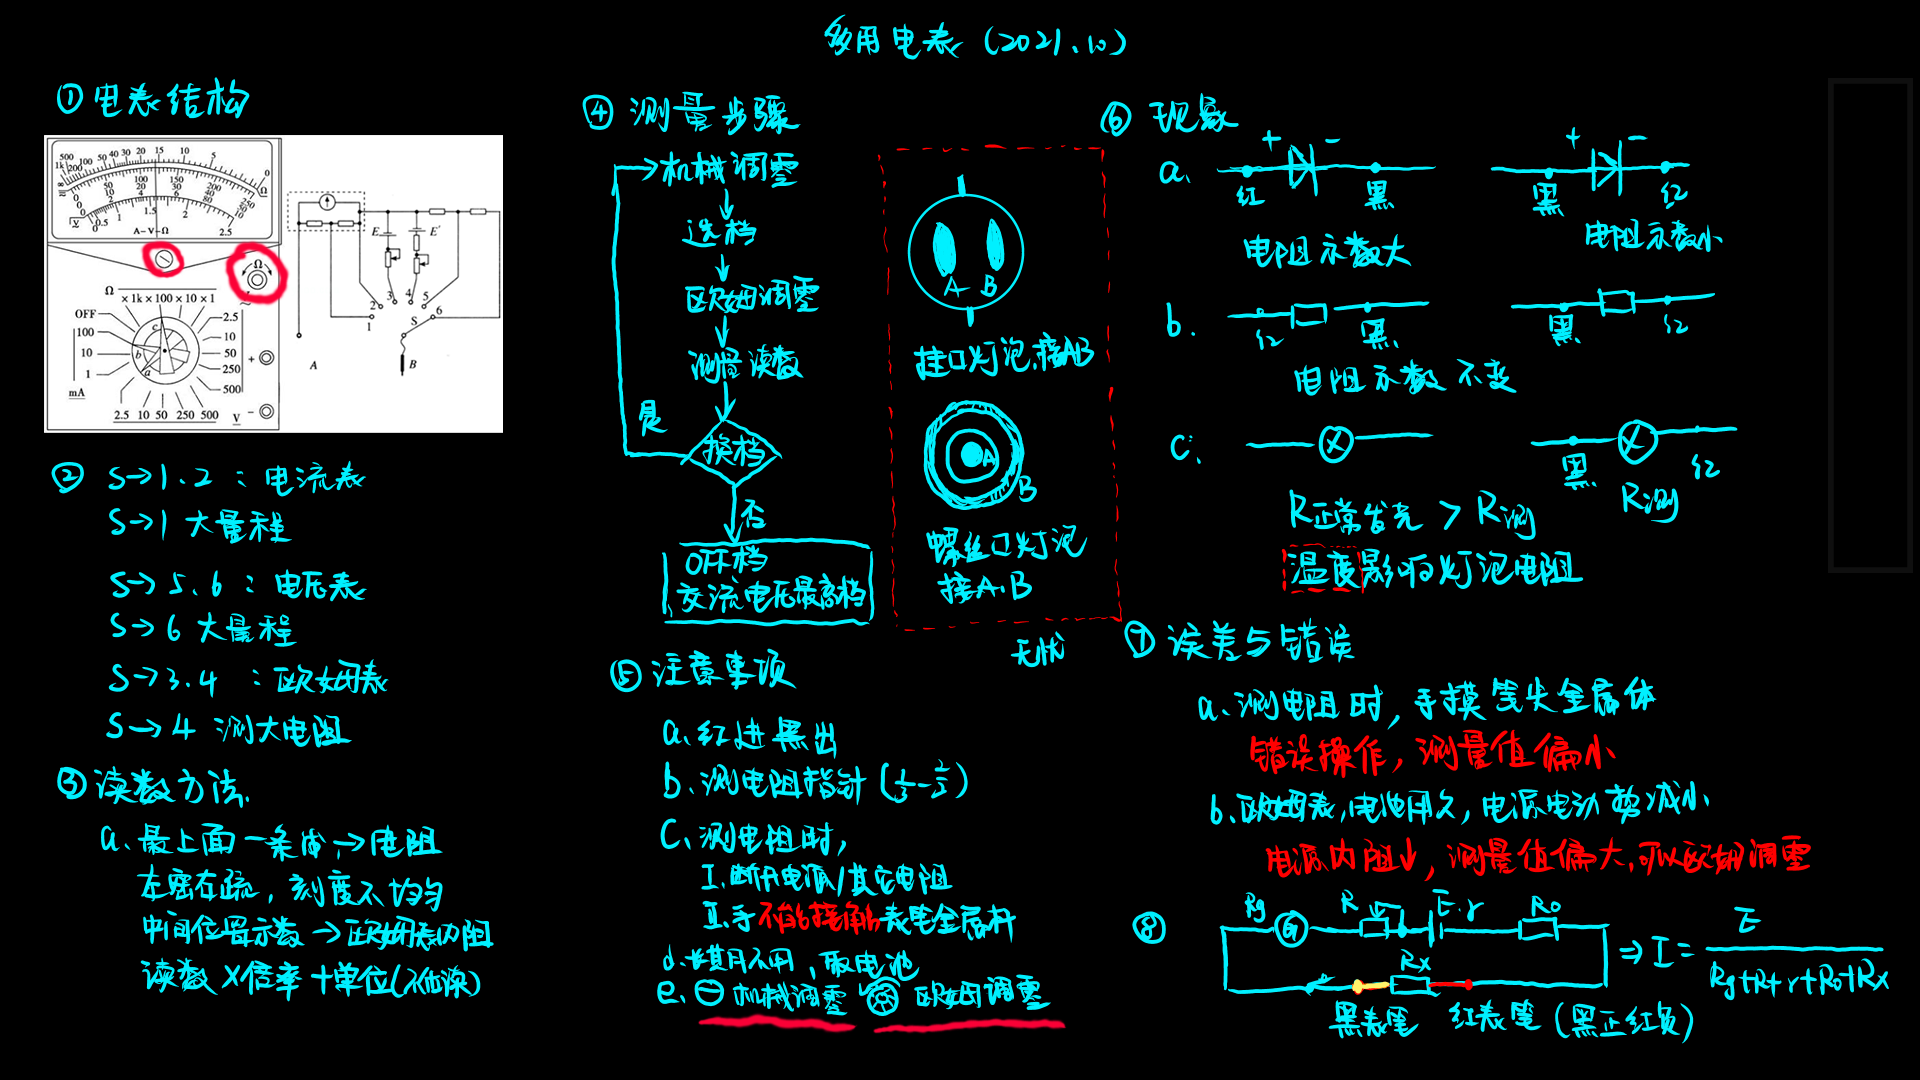 多用电表 (2021.10)
① 电表结构
500 1k 200 100 50 40 30 20 15 10 5 0
∞ Ω
0 50 100 150 200 250
0 10 20 30 40 50
0 2 4 6 8 10
V 0 0.5 1 1.5 2 2.5
A-V-Ω
Ω
Ω
×1k×100×10×1
OFF
100
10
1
mA
2.5
10
50
250
500
2.5 10 50 250 500
V
+
-
a
b
c
E
E'
1
2
3
4
5
6
S
A
B
② S→1.2 : 电流表
S→1 大量程
S→5.6 : 电压表
S→6 大量程
S→3.4 : 欧姆表
S→4 测大电阻
③ 读数方法.
a. 最上面一条 → 电阻
左密右疏, 刻度不均匀
中间位置示数 → 欧姆表内阻
读数×倍率+单位(不估读)
④ 测量步骤
机械调零
选档
欧姆调零
测量读数
换档
是
否
OFF档
交流电压最高档
A B
挂口灯泡.接AB
A
B
螺丝口灯泡
接A.B
无忧
⑤ 注意事项
a. 红进黑出
b. 测电阻指针 (1/3-2/3)
C. 测电阻时,
I. 断开电源/其它电阻
II. 手不能接触表笔金属杆
d. 长期不用, 取电池
e. 机械调零 欧姆调零
⑥ 现象
a. + - + -
红 黑 黑 红
电阻示数大 电阻示数小
b. 红 黑 黑 红
电阻示数不变
C. 黑 红
R测
R正常发光 > R测
温度影响灯泡电阻
⑦ 误差与错误
a. 测电阻时, 手摸笔头金属体
错误操作, 测量值偏小
b. 欧姆表, 电池用久, 电源电动势减小
电源内阻↓, 测量值偏大, 可以欧姆调零
⑧ Rg G R E.r R0
Rx
⇒ I = E / (Rg+R+r+R0+Rx)
黑表笔 红表笔 (黑正红负)